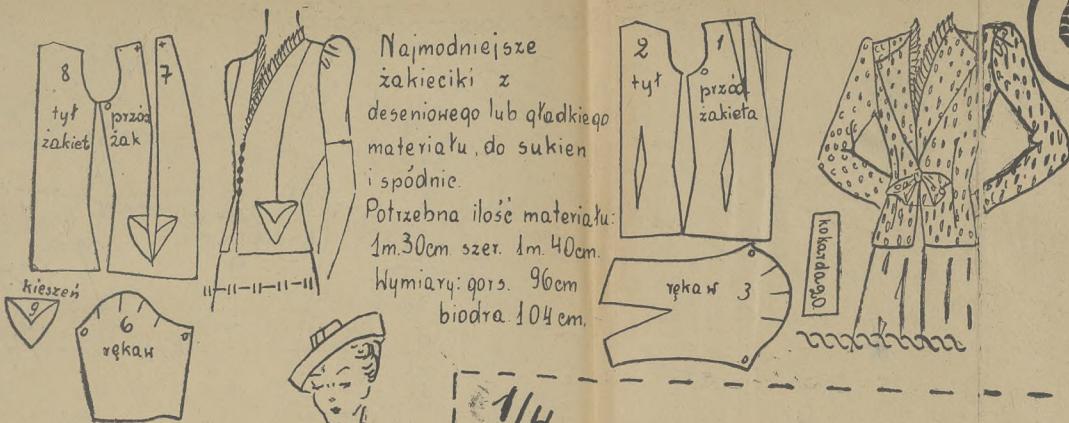 8
tył
żakiet
przód
żak
7
kieszeń
9
6
rękaw
Najmodniejsze
żakieciki z
deseniowego lub gładkiego
materiału, do sukien
i spódnic.
Potrzebna ilość materiału:
1m.30cm. szer. 1m.40cm.
Wymiary: gors. 96cm
biodra 104cm.
2
tył
1
przód
żakieta
rękaw 3
kokarda
1/4